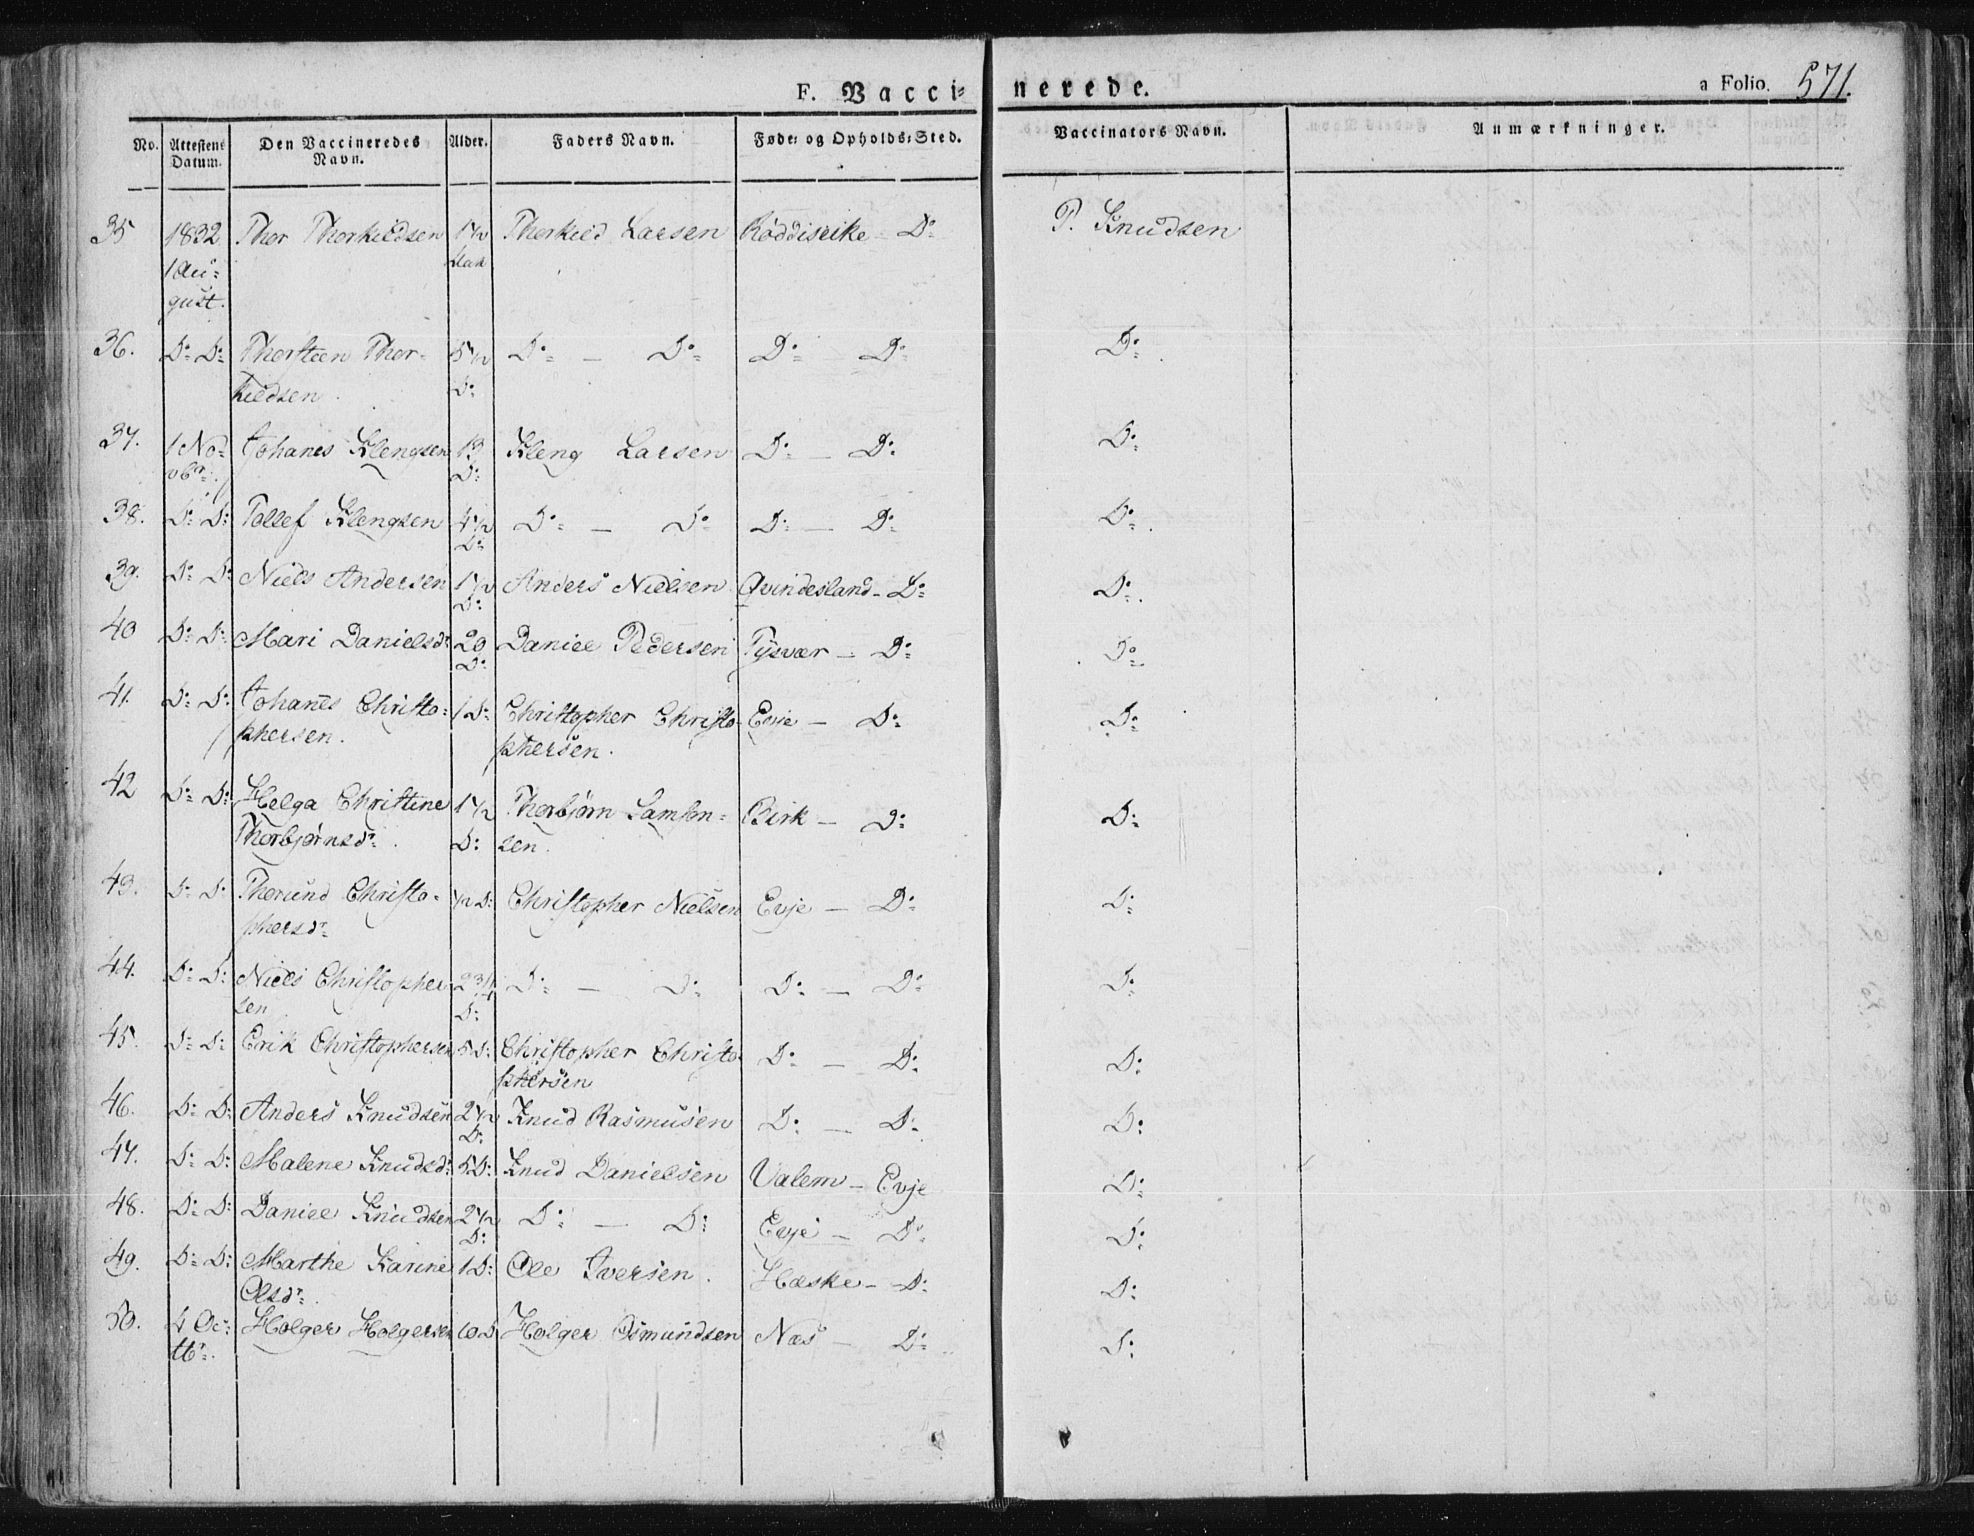 F. Vacci=nerede.
a Folio. 571.
No. Attestens Datum. Den Vaccineredes Navn. Alder. Faders Navn. Føde- og Opholds-Sted. Vaccinators Navn. Anmærkninger.
35 1832 Thor Thorkildsen 1 1/2 Thorkild Larsen D: P. Knudsen
1 Au=
gust.
36. D: D: Thorsteen Thor= 5 1/2 D: — D: D: — D: D:
kildsen. D:
37. 1 No= Johanes Klengsen 13 Kleng Larsen D: — D: D:
vbr: D:
38. D: D: Tollef Klengsen 4 1/2 D: — D: D: — D: D:
D:
39. D: D: Niels Andersen 1 1/2 Anders Nielsen Qvindesland - D: D:
D:
40 D: D: Mari Danielsdr 20 Daniel Pedersen Tysvær — D: D:
D:
41. D: D: Johanes Christo= 1 D: Christopher Christo= Evje — D: D:
phersen. phersen.
42 D: D: Helga Christine 1 1/2 Thorbjørn Samson= Birk — D: D:
Thorbjørnsdr. D: sen.
43. D: D: Christo= 1/2 D: Christopher Nielsen Evje — D: D:
phersdr
44. D: D: Niels Christopher 2 3/4 D: — D: D: — D: D:
sen D:
45. D: D: Erik Christophersen 5 D: Christopher Christo= D: — D: D:
phersen
46. D: D: Anders Knudsen 2 1/2 Knud Rasmusen D: — D: D:
D:
47. D: D: Malene Knudsdr 5 D: Knud Danielsen Valem — Evje D:
48. D: D: Daniel Knudsen 2 1/2 D: — D: Evje — D: D:
D:
49. D: D: Marthe Karine 1 D: Ole Iversen. Hæske — D: D:
Olsdr.
50. 4 Oc= Holger Holgersen 10 D Holger Osmundsen Næs — D: D:
tbr: